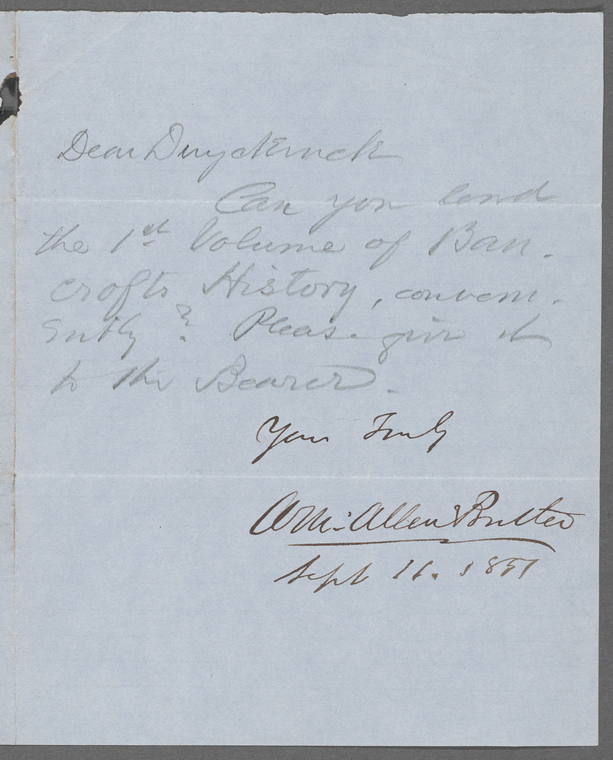 Dear Duyckinck
Can you lend
the 1st Volume of Ban-
crofts History, conveni-
ently? Please give it
to the Bearer.
Yours Truly
Wm: Allen Butler
Sept 16. 1851